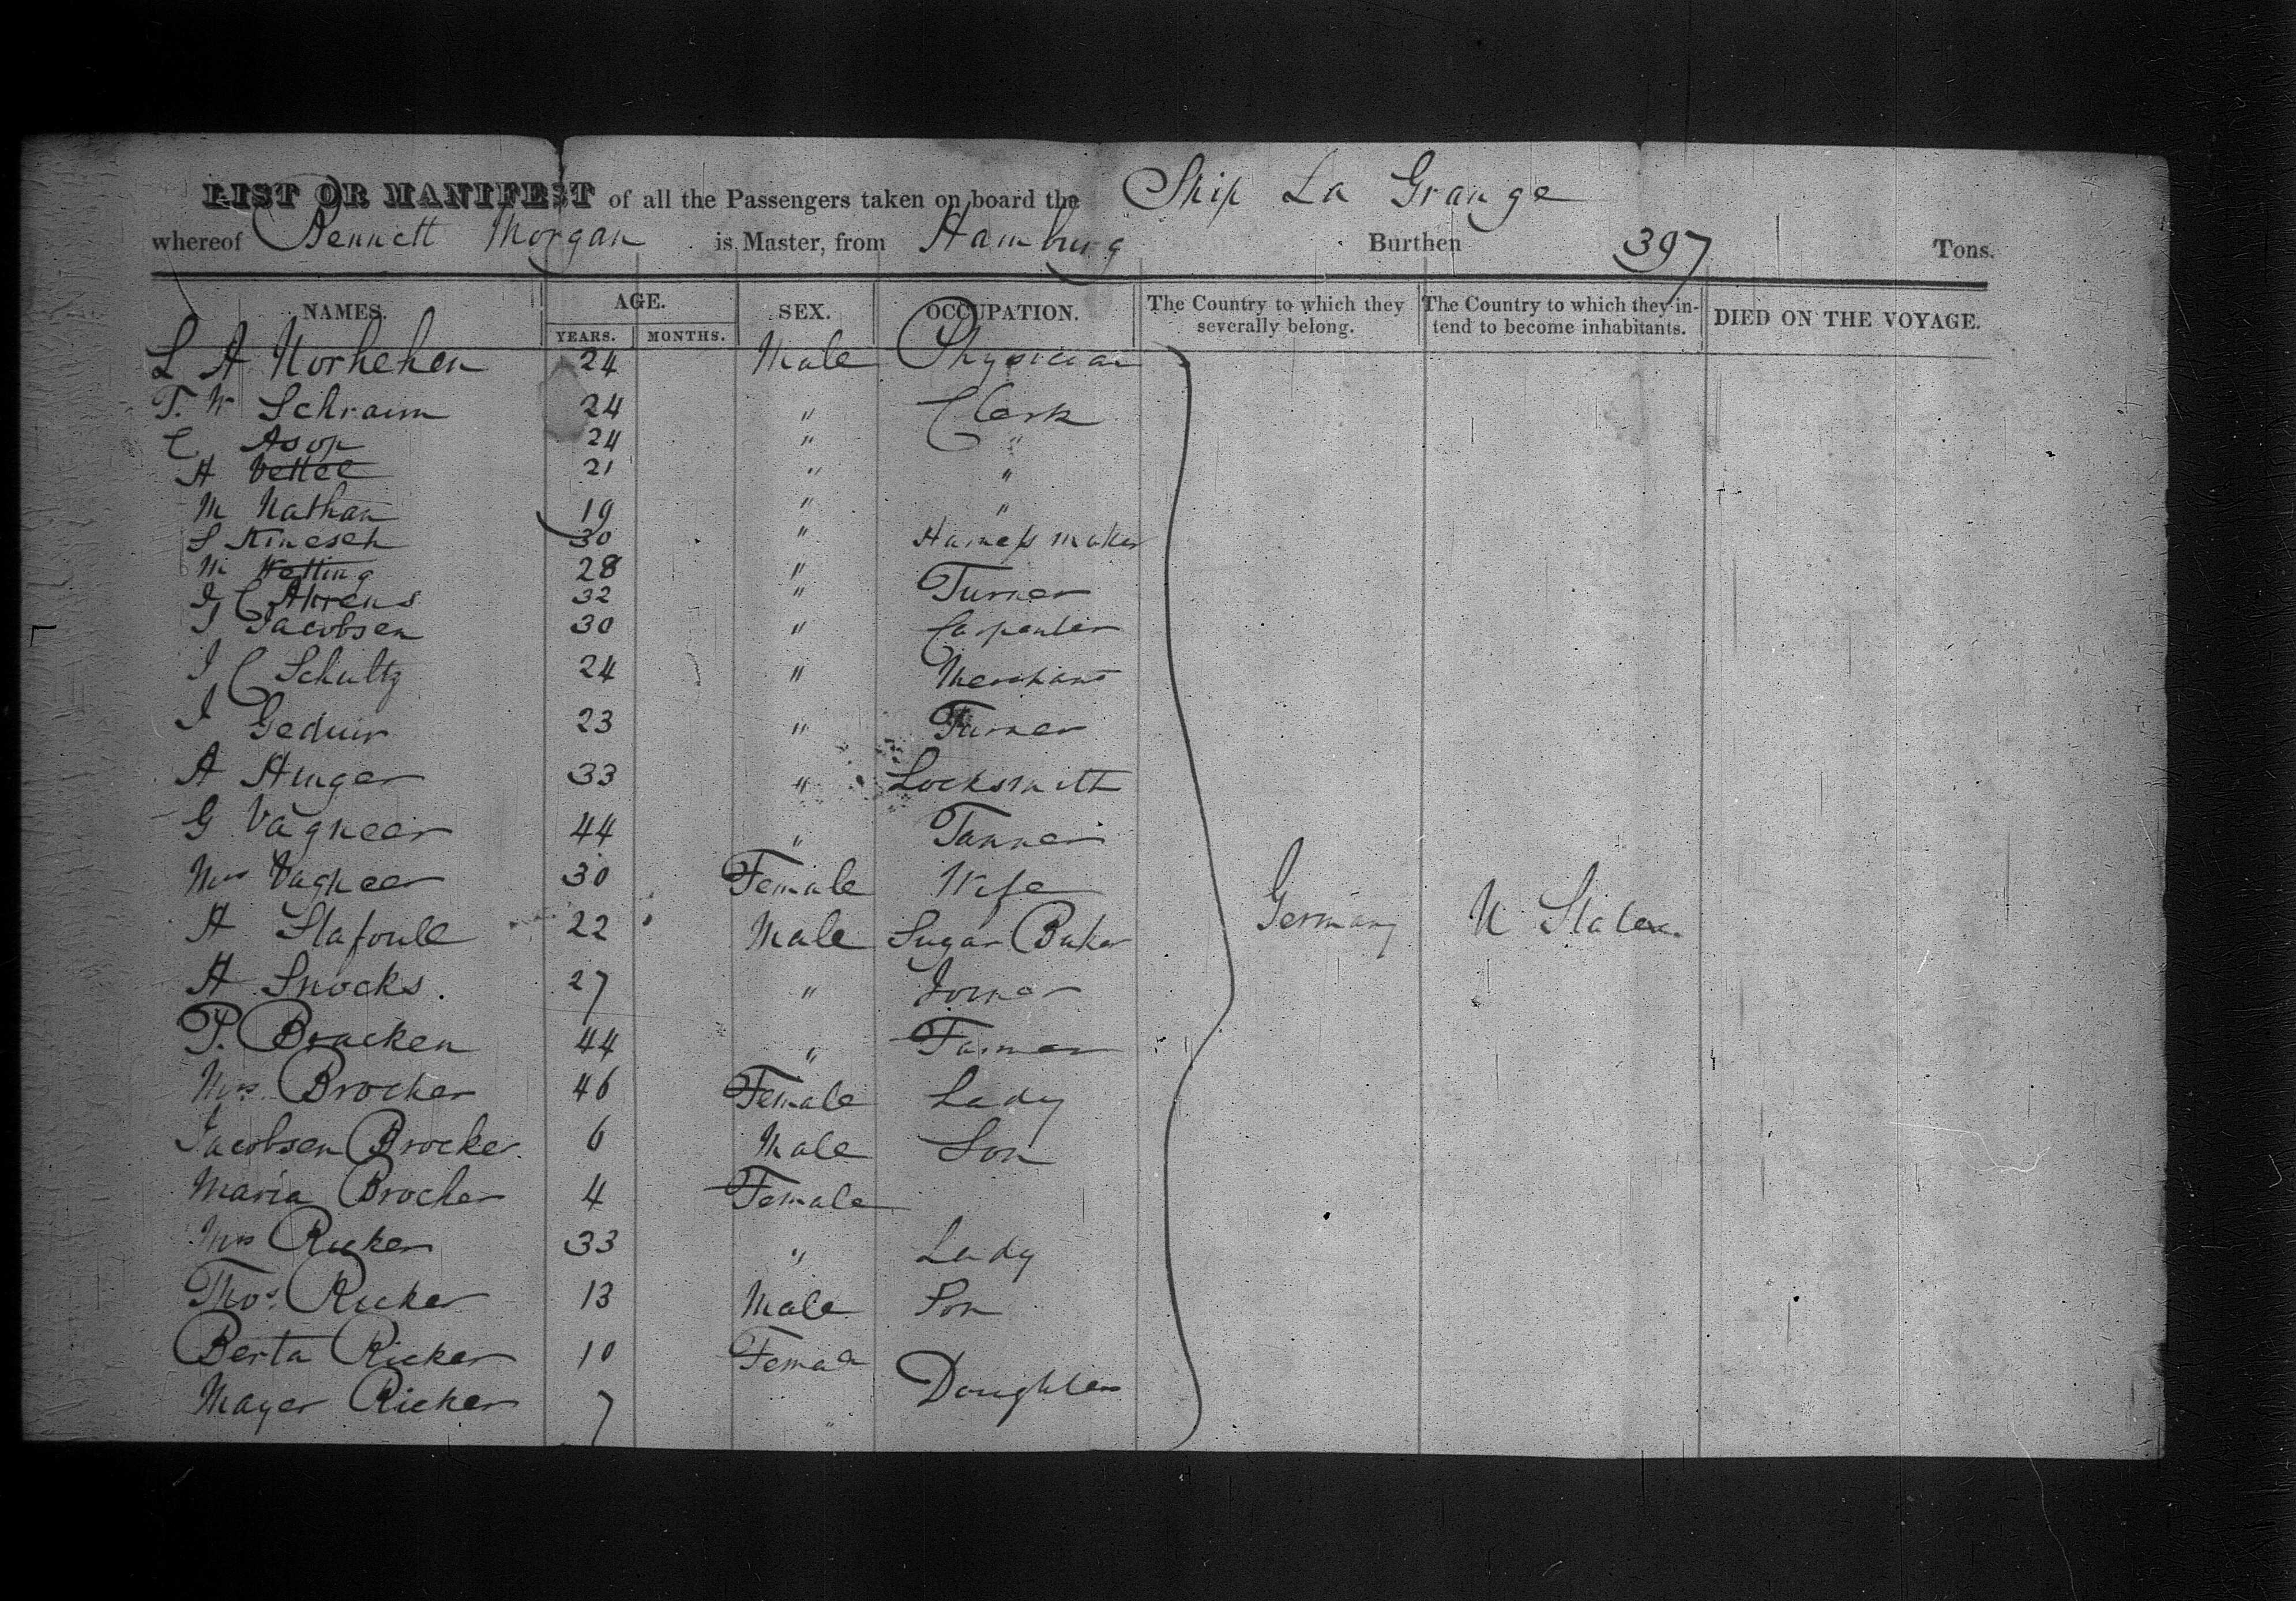 LIST OR MANIFEST of all the Passengers taken on board the Ship La Grange
whereof Bennett Morgan is Master, from Hamburg Burthen 397 Tons.
NAMES. AGE. SEX. OCCUPATION. The Country to which they severally belong. The Country to which they intend to become inhabitants. DIED ON THE VOYAGE.
YEARS. MONTHS.
L A Norhehen 24 Male Physician
T. W Schramm 24 " Clerk
C Asop 24 " "
A Vettee 21 " "
M Nathan 19 " "
S Kinesch 30 " Harness maker
M Wetting 28 "
J C Ahrens 32 " Turner
J Jacobsen 30 " Carpenter
J C Schultz 24 " Merchant
J 23 " Turner
A Hunger 33 " Locksmith
G Vagneer 44 " Tanner
Mrs Vagneer 30 Female Wife
A 22 Male Sugar Baker Germany U States.
A Snocks. 27 " Joiner
P. Bracken 44 " Farmer
Mrs. Brocker 46 Female Lady
Jacobsen Brocker 6 Male Son
Maria Brocker 4 Female
Mrs Ricker 33 " Lady
Thos. Ricker 13 Male Son
Berta Ricker 10 Female
Mayer Ricker 7 " Daughter